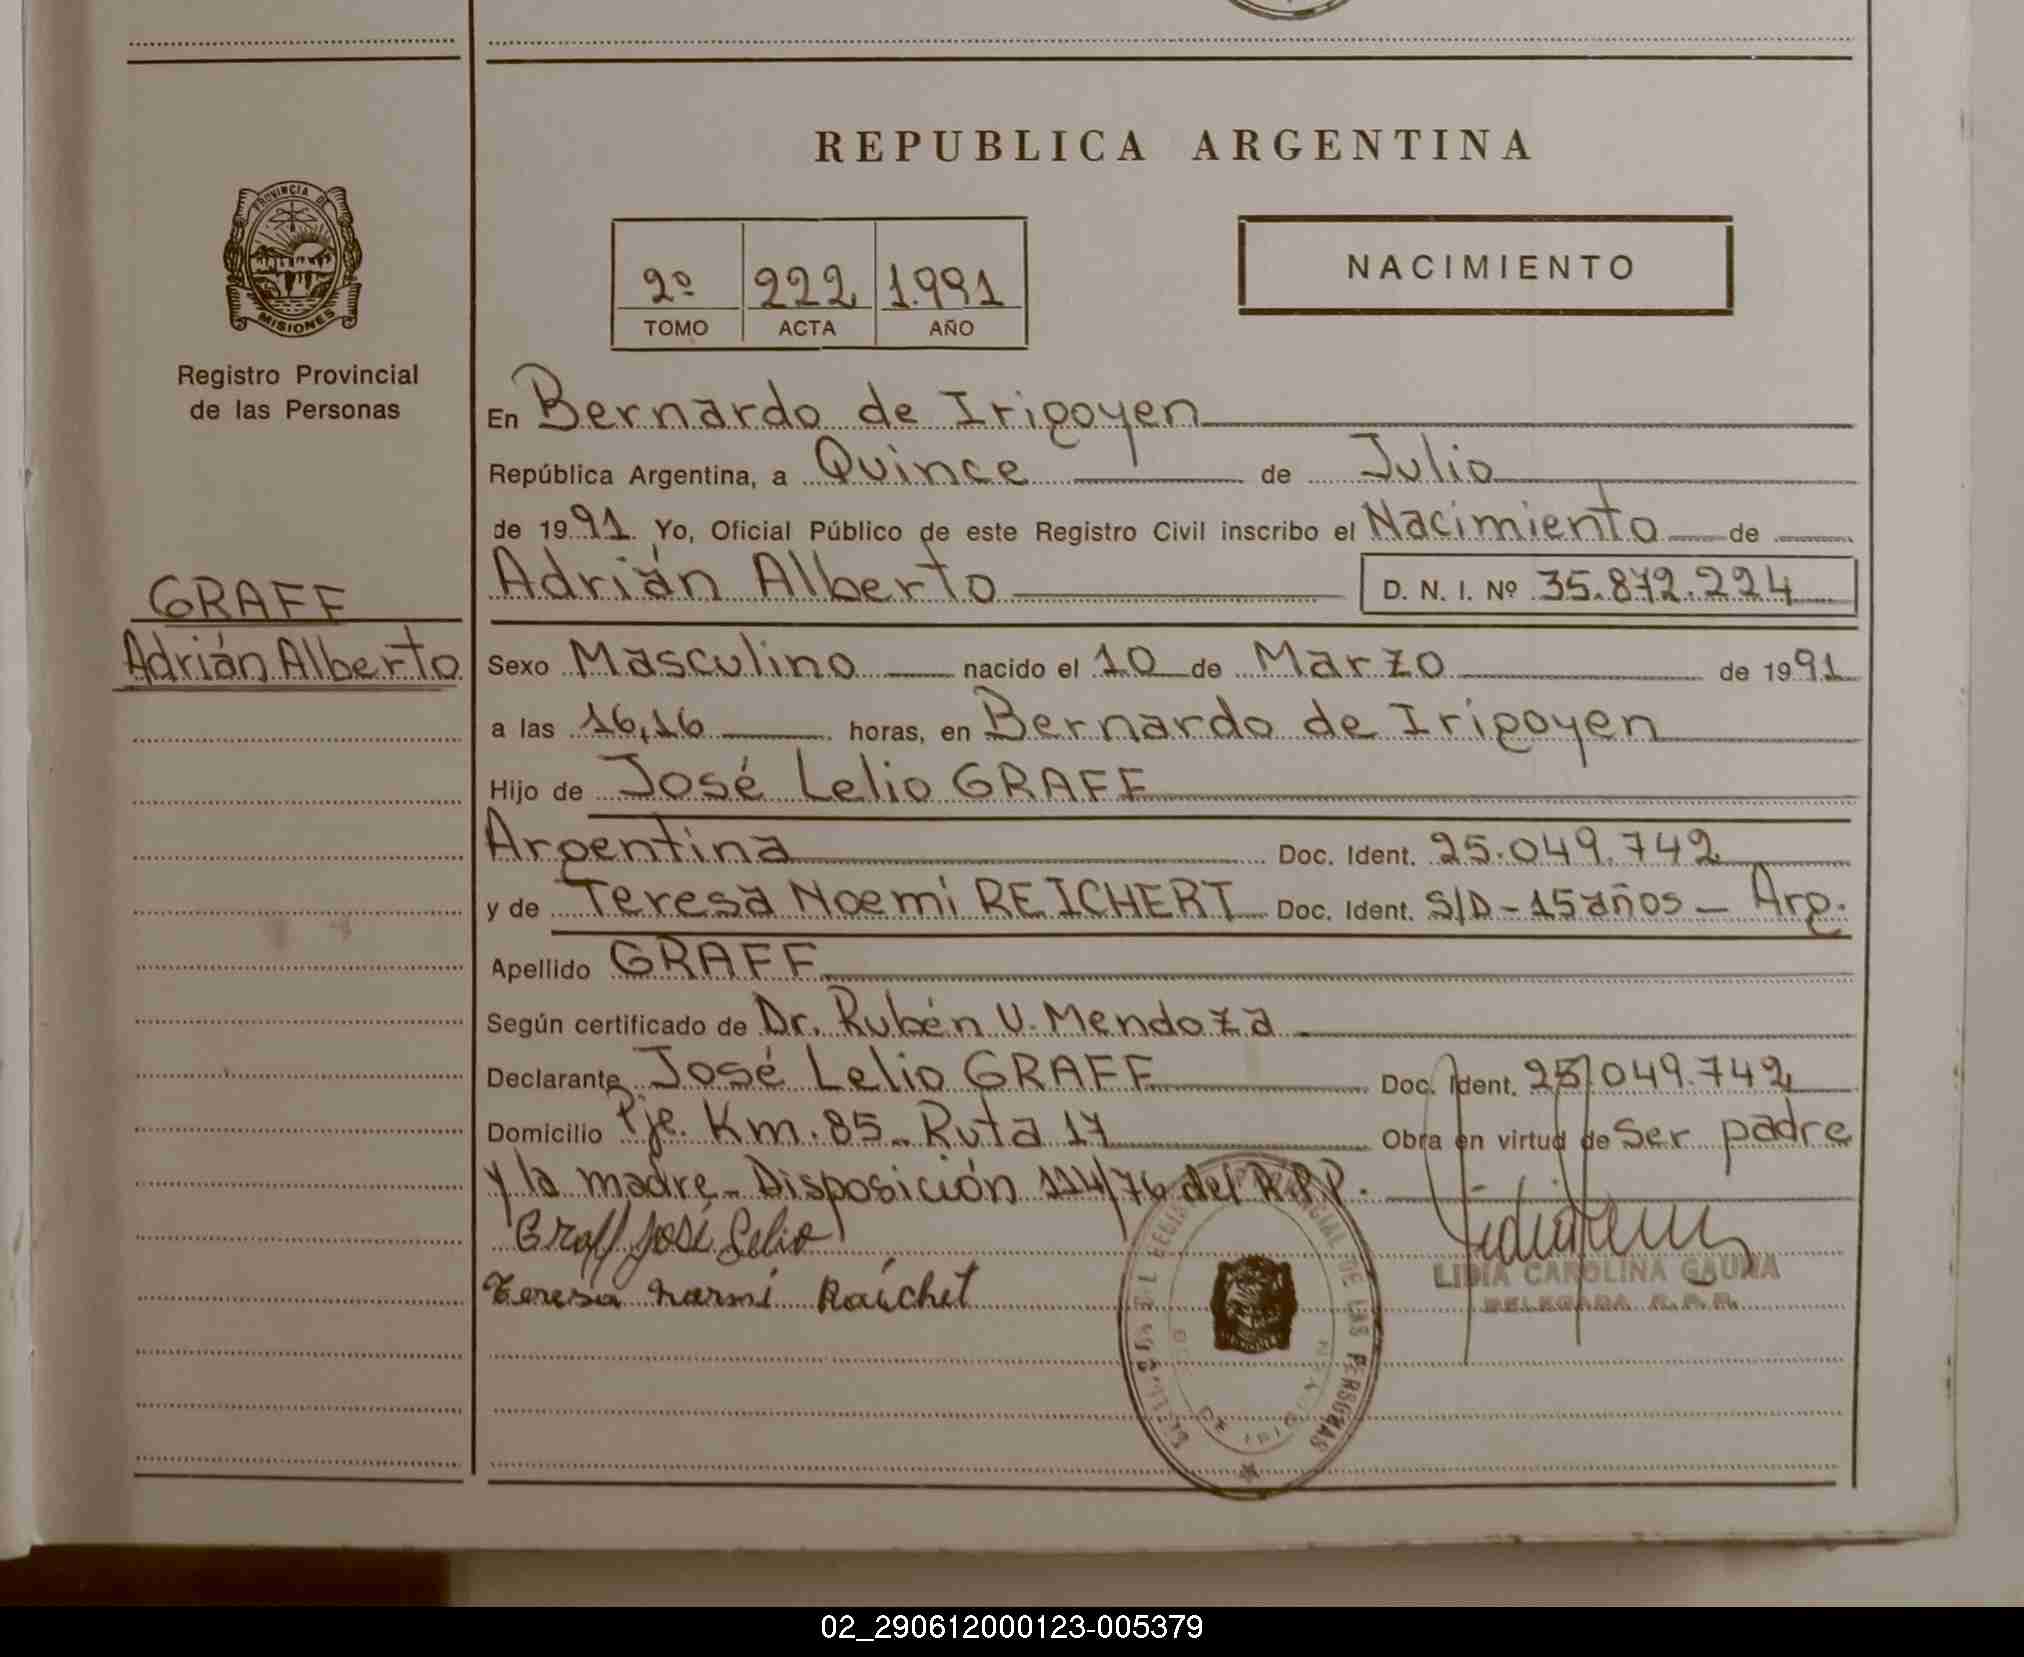 REPUBLICA ARGENTINA
PROVINCIA DE
MISIONES
Registro Provincial
de las Personas
2º 222 1.991
TOMO ACTA AÑO
NACIMIENTO
En Bernardo de Irigoyen
República Argentina, a Quince de Julio
de 1991. Yo, Oficial Público de este Registro Civil inscribo el Nacimiento de
Adrián Alberto D. N. I. Nº 35.872.224
GRAFF
Adrián Alberto
Sexo Masculino nacido el 10 de Marzo de 1991
a las 16,16 horas, en Bernardo de Irigoyen
Hijo de José Lelio GRAFF
Argentina Doc. Ident. 25.049.742
y de Teresa Noemí REICHERT Doc. Ident. S/D-15 años - Arg.
Apellido GRAFF
Según certificado de Dr. Rubén U. Mendoza
Declarante José Lelio GRAFF Doc. Ident. 25.049.742
Domicilio Pje. Km. 85 - Ruta 17 Obra en virtud de Ser padre
y la madre - Disposición 114/76 del R.P.P.
Graff José Lelio
Teresa Naemi Raichet
LIDIA CAROLINA GAUNA
DELEGADA R.P.P.
PROVINCIAL DE LAS PERSONAS
DE IRIGOYEN
02_290612000123-005379